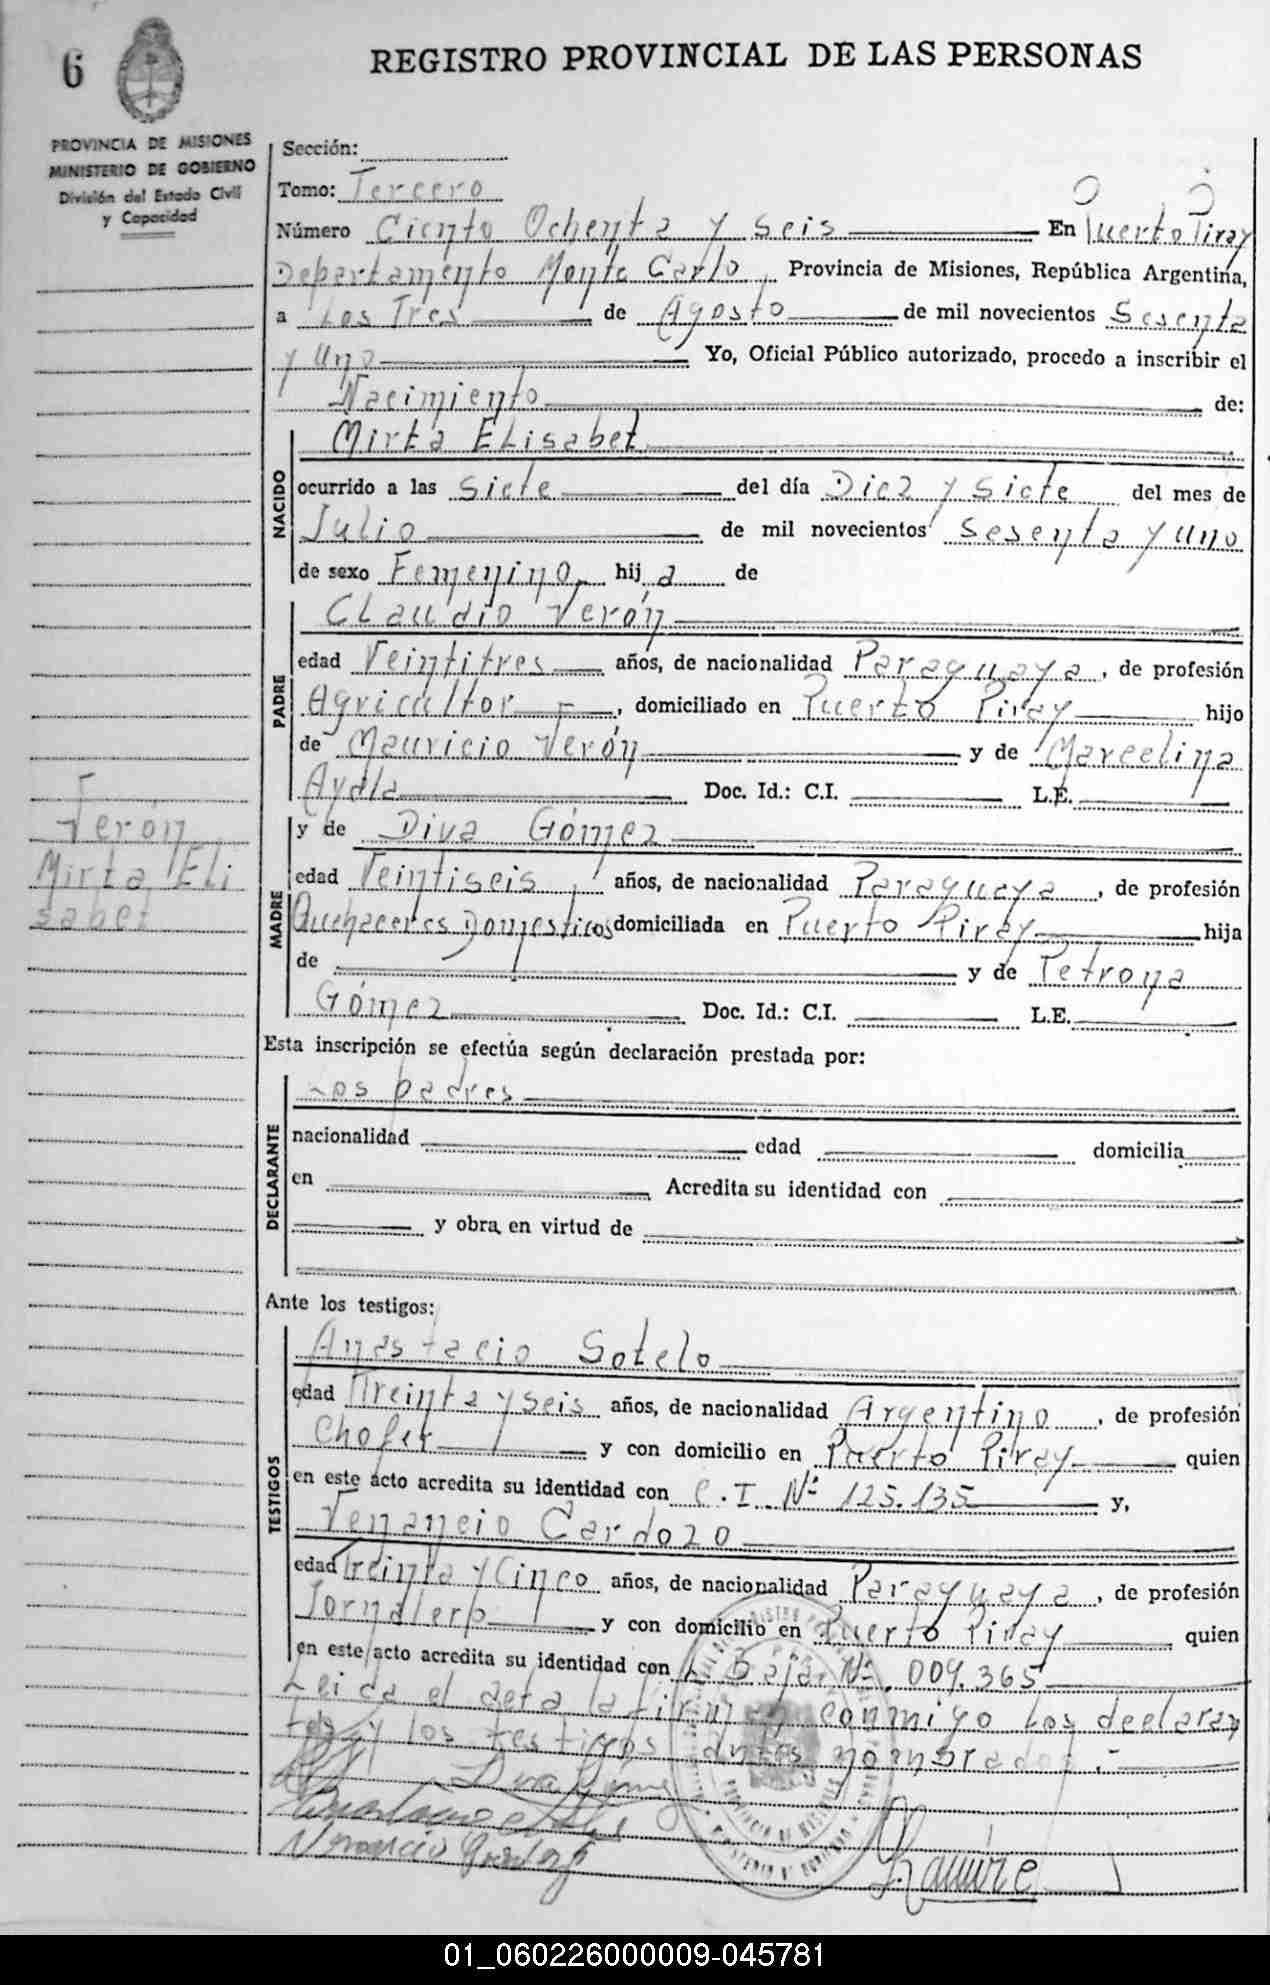 6
REGISTRO PROVINCIAL DE LAS PERSONAS
PROVINCIA DE MISIONES
MINISTERIO DE GOBIERNO
División del Estado Civil
y Capacidad
Sección:
Tomo: Tercero
Número Ciento Ochenta y Seis En Puerto Piray
Departamento Monte Carlo, Provincia de Misiones, República Argentina,
a Los Tres de Agosto de mil novecientos Sesenta
y Uno Yo, Oficial Público autorizado, procedo a inscribir el
Nacimiento de:
NACIDO
Mirta Elisabet
ocurrido a las Siete del día Diez y Siete del mes de
Julio de mil novecientos Sesenta y Uno
de sexo Femenino, hija de
PADRE
Claudio Verón
edad Veintitres años, de nacionalidad Paraguaya, de profesión
Agricultor, domiciliado en Puerto Piray hijo
de Mauricio Verón y de Marcelina
Ayala Doc. Id.: C.I. L.E.
Verón
Mirta Eli
sabet
MADRE
y de Diva Gómez
edad Veintiseis años, de nacionalidad Paraguaya, de profesión
Quehaceres Domesticos domiciliada en Puerto Piray hija
de y de Petrona
Gómez Doc. Id.: C.I. L.E.
Esta inscripción se efectúa según declaración prestada por:
DECLARANTE
Los padres
nacionalidad edad domicilia
en Acredita su identidad con
y obra en virtud de
Ante los testigos:
TESTIGOS
Anastacio Sotelo
edad Treinta y seis años, de nacionalidad Argentino, de profesión
Chofer y con domicilio en Puerto Piray quien
en este acto acredita su identidad con C.I. Nº 125.135 y,
Venancio Cardozo
edad Treinta y Cinco años, de nacionalidad Paraguaya, de profesión
Jornalero y con domicilio en Puerto Piray quien
en este acto acredita su identidad con Nº 009.365
Leida el acta la firman conmigo los declaran
tes y los testigos antes nombrados.
Diva Gómez
Ramíre
01_060226000009-045781